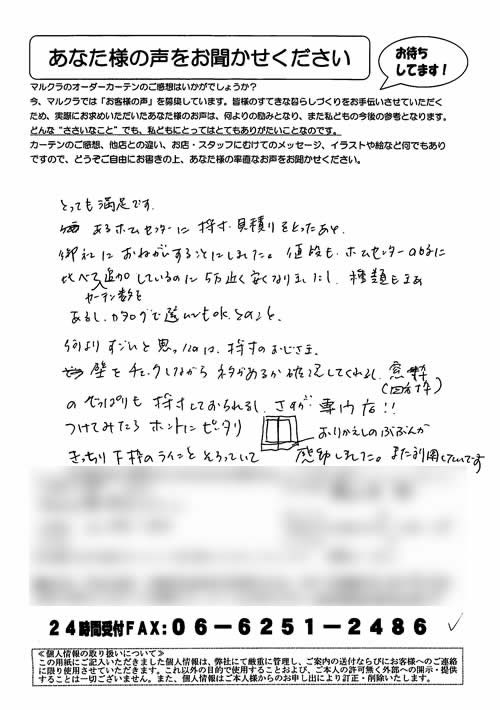 あなた様の声をお聞かせください
お待ち
してます！
マルクラのオーダーカーテンのご感想はいかがでしょうか？
今、マルクラでは「お客様の声」を募集しています。皆様のすてきな暮らしづくりをお手伝いさせていただく
ため、実際にお求めいただいたあなた様のお声は、何よりの励みとなり、また私どもの今後の参考となります。
どんな“ささいなこと”でも、私どもにとってはとてもありがたいことなのです。
カーテンのご感想、他店との違い、お店・スタッフにむけてのメッセージ、イラストや絵など何でもあり
ですので、どうぞご自由にお書きの上、あなた様の率直なお声をお聞かせください。
とっても満足です。
あるホムセンターに採寸、見積りをとったあと、
御社におねがいすることにしました。値段も、ホムセンターの時に
比べて追加しているのに5万近く安くなりましたし、種類も
カーテン数を
あるし、カタログで選んでもOK、とのこと。
何よりすごいと思ったのは、採寸のおじさま。
壁をチェックしながらネタがあるか確認してくれるし、窓枠
(四方枠)
のでっぱりも採寸しておられるし、さすが専門店！！
つけてみたらホントにピッタリ
おりかえしのぶぶんが
きっちり下枠のラインとそろっていて 感動しました。また利用したいです
24時間受付FAX:06-6251-2486
≪個人情報の取り扱いについて≫
この用紙にご記入いただきました個人情報は、弊社にて厳重に管理し、ご案内の送付ならびにお客様へのご連絡
に限り使用させていただきます。これ以外の目的で使用することおよび、ご本人の許可無く外部への開示・提供
することは一切ございません。また、個人情報はご本人様からのお申し出により訂正・削除いたします。